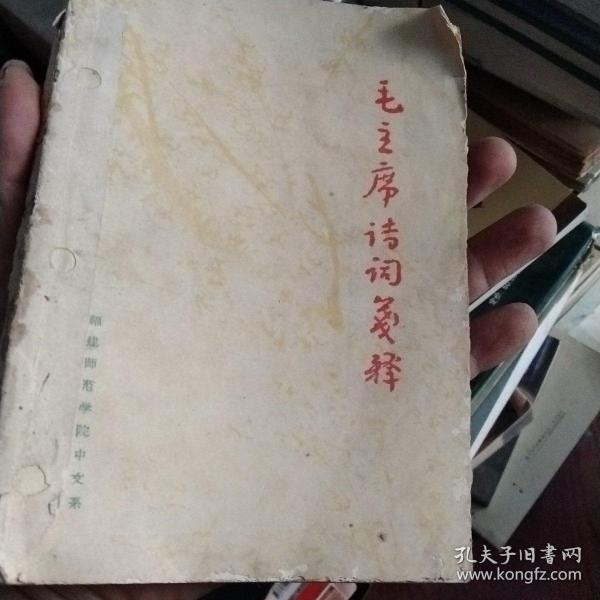 毛主席诗词笺释
福建师范学院中文系
孔夫子旧书网
www.kongfz.com